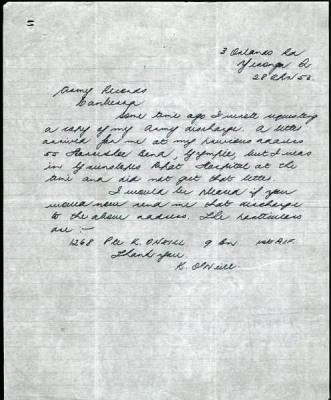 3 Orlando Rd
Yeronga Q
28
Army Records
Canberra
Some time ago I wrote requesting
a copy of my Army discharge. A letter
arrived for me at my previous address
Horseshoe Bend, Gympie, but I was
in Greenslopes Repat Hospital at the
time and did not get that letter.
I would be pleased if you
would now send me that discharge
to the above address. The particulars
are :-
1268 Pte K. O'Neill 9 Bn 1st AIF
Thank you
K. O'Neill.